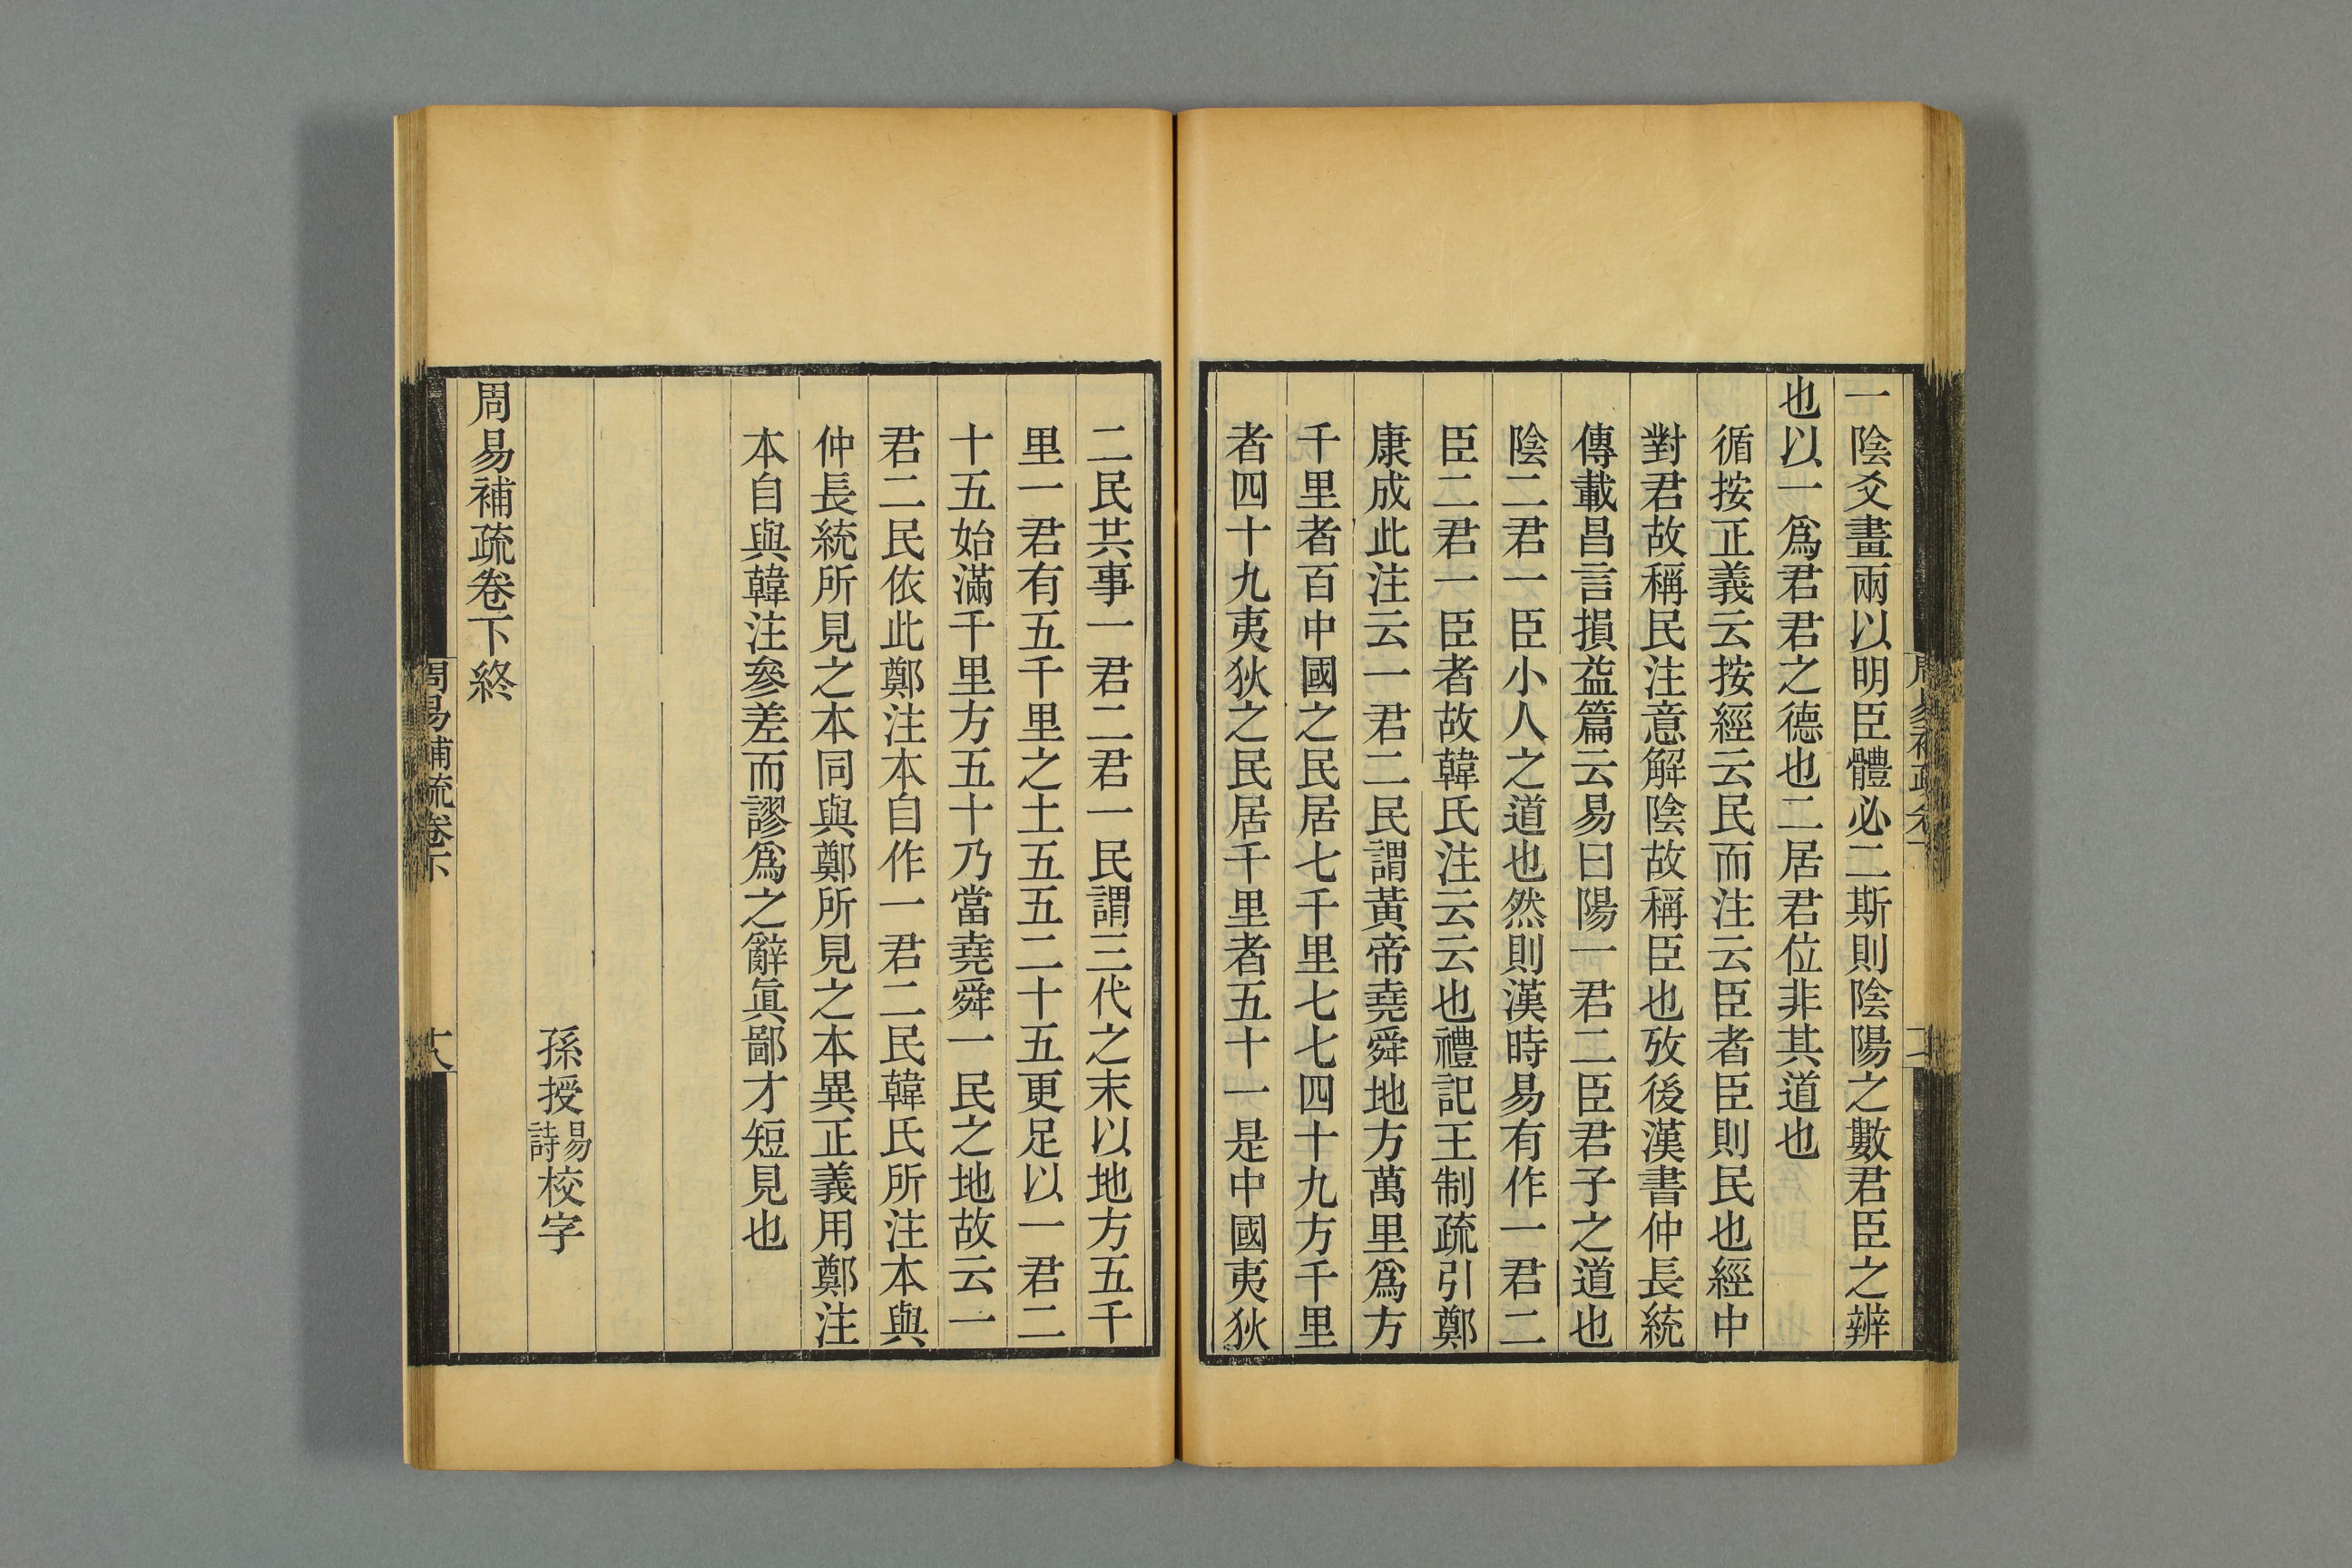 一陰爻畫兩以明臣體必二斯則陰陽之數君臣之辨
也以一爲君君之德也二居君位非其道也
循按正義云按經云民而注云臣者臣則民也經中
對君故稱民注意解陰故稱臣也攷後漢書仲長統
傳載昌言損益篇云易曰陽一君二臣君子之道也
陰二君一臣小人之道也然則漢時易有作一君二
臣二君一臣者故韓氏注云云也禮記王制疏引鄭
康成此注云一君二民謂黃帝堯舜地方萬里爲方
千里者百中國之民居七千里七七四十九方千里
者四十九夷狄之民居千里者五十一是中國夷狄
二民共事一君二君一民謂三代之末以地方五千
里一君有五千里之土五五二十五更足以一君二
十五始滿千里方五十乃當堯舜一民之地故云一
君二民依此鄭注本自作一君二民韓氏所注本與
仲長統所見之本同與鄭所見之本異正義用鄭注
本自與韓注參差而謬爲之辭眞鄙才短見也
孫授易詩校字
周易補疏卷下終
周易補疏卷下
十八